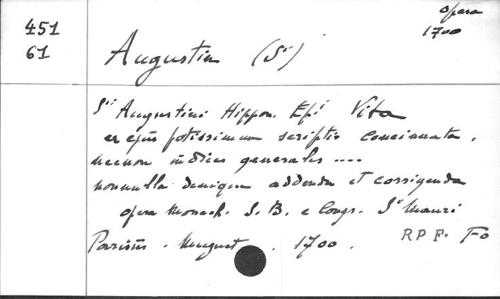 opera
1700
451
61
Augustin (St)
Sti Augustini Hippon. Epi Vita
ex ejus potissimum scriptis concinnata,
necnon indices generales ....
nonnulla denique addenda et corrigenda
opera monach. S. B. e Congr. Sti Mauri
Parisiis . Muguet . 1700. RPF. Fo